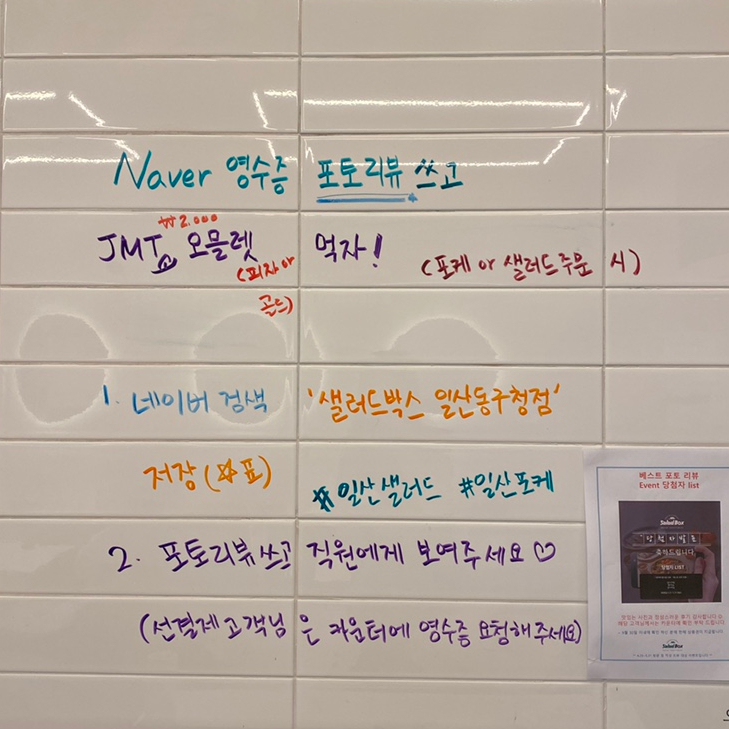 Naver 영수증 포토리뷰 쓰고
₩2.000
JMT 오믈렛 먹자!
(피자 or 골드)
(포케 or 샐러드주문 시)
1. 네이버 검색 '샐러드박스 일산동구청점'
저장(☆표) #일산샐러드 #일산포케
2. 포토리뷰쓰고 직원에게 보여주세요♡
(선결제고객님은 카운터에 영수증 요청해주세요)
베스트 포토 리뷰
Event 당첨자 list
SaladBox
당첨자발표
축하드립니다
당첨자 LIST
SaladBox